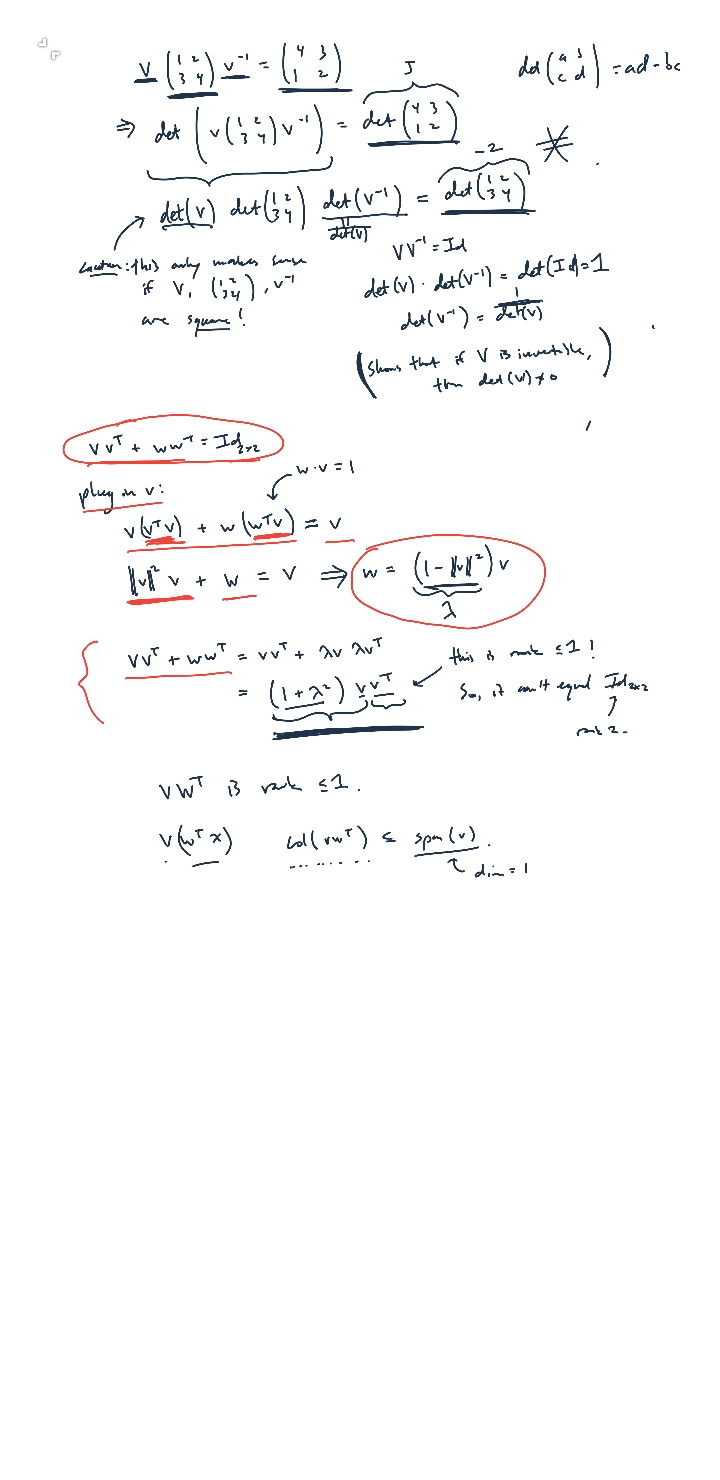 V (1 2 3 4) V⁻¹ = (4 3 1 2)
det (a b c d) = ad - bc
5
⇒ det (V (1 2 3 4) V⁻¹) = det (4 3 1 2)
-2
det(V) det(1 2 3 4) det(V⁻¹) = det(1 2 3 4)
1/det(V)
Caution: this only makes sense
if V, (1 2 3 4), V⁻¹
are square!
VV⁻¹ = Id
det(V) · det(V⁻¹) = det(Id) = 1
det(V⁻¹) = 1/det(V)
(Shows that if V is invertible,
then det(V) ≠ 0)
vvᵀ + wwᵀ = Id₂ₓ₂
plug in v:
w·v = 1
v(vᵀv) + w(wᵀv) = v
‖v‖² v + w = v ⇒ w = (1 - ‖v‖²) v
λ
vvᵀ + wwᵀ = vvᵀ + λv λvᵀ
= (1 + λ²) v vᵀ
this is rank ≤ 1!
So, it can't equal Id₂ₓ₂
rank 2.
vwᵀ is rank ≤ 1.
v(wᵀx) col(vwᵀ) ⊆ span(v).
dim = 1